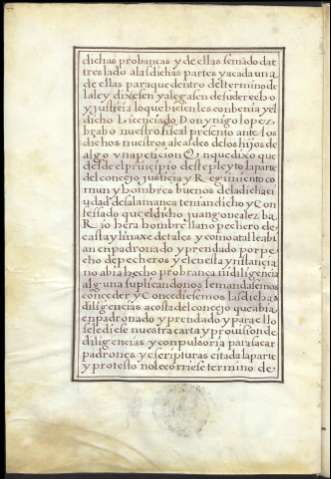 dichas probancas y de ellas se mado dar
treslado alas dichas partes y a cada una
de ellas para que dentro del termino de
la ley dixesen y alegasen de su derecho
y justicia lo que bien les conbenia y el
dicho Licenciado Don ynigo lopez
brabo nuestro fiscal presento ante los
dichos nuestros alcaldes de los hijos de
algo una peticion En que dixo que
desde el principio deste pleyto la parte
del concejo justicia y Regimiento co
mun y hombres buenos de la dicha ci
udad de salamanca tenian dicho y con
fesado que el dicho juan goncalez ba
Rio hera hombre llano pechero de
casta y linaxe de tales y como a tal le abi
an enpadronado y prendado por pe
cho de pecheros y el en esta ynstancia
no abia hecho probanca ni diligencia
alguna suplicandonos le mandasemos
conceder y Concediesemos las dichas
diligencias a costa del concejo que abia
enpadronado y prendado y para ello
se le diese nuestra carta y provision de
diligencias y conpulsoria para sacar
padrones y escripturas citada la parte
y protesto no le corriese termino de